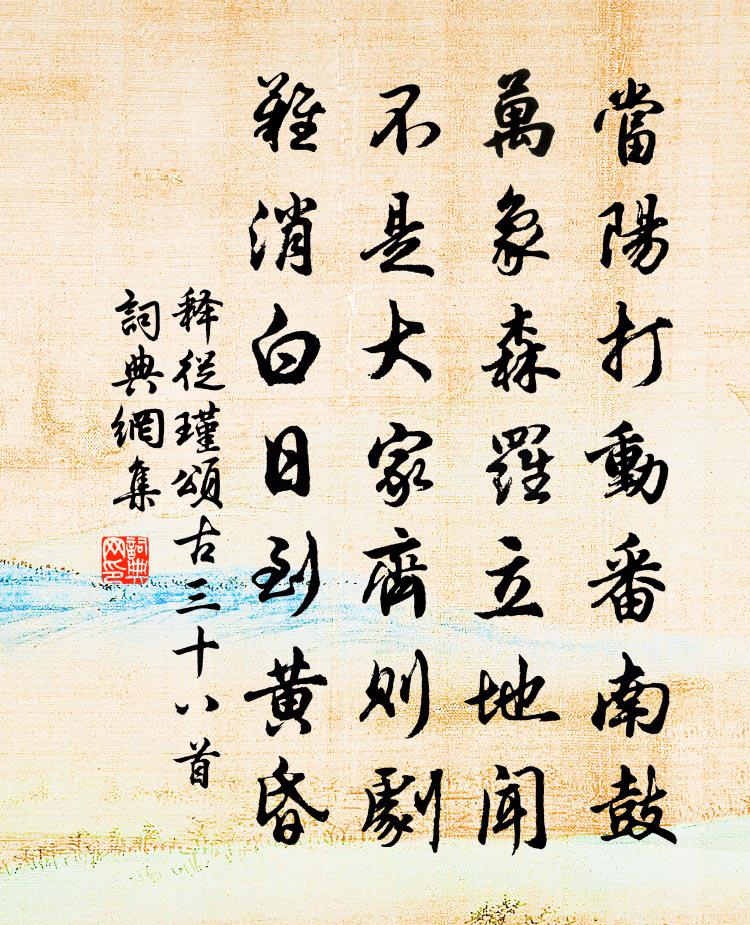 當陽打動番南鼓
萬象森羅立地聞
不是大家齊則劇
難消白日到黃昏
释從瑾頌古三十八首
詞典網集
詞典
网印